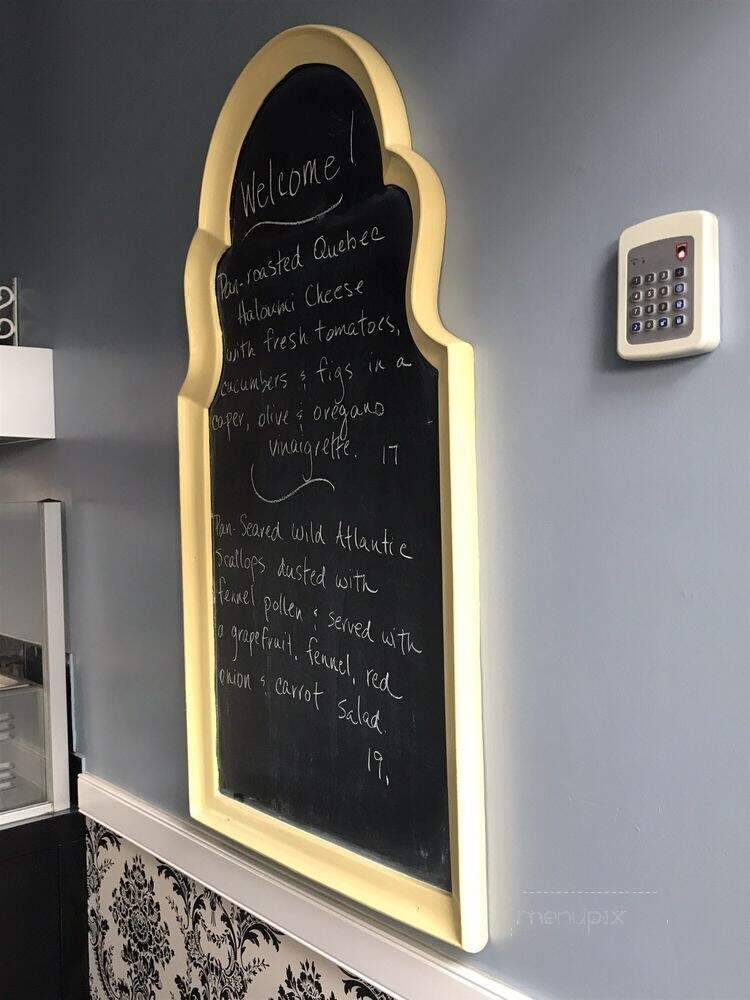 Welcome!
Pan-roasted Quebec
Haloumi Cheese
with fresh tomatoes,
cucumbers & figs in a
caper, olive & oregano
vinaigrette. 17
Pan-Seared Wild Atlantic
Scallops dusted with
fennel pollen & served with
a grapefruit, fennel, red
onion & carrot salad.
19.
menupix